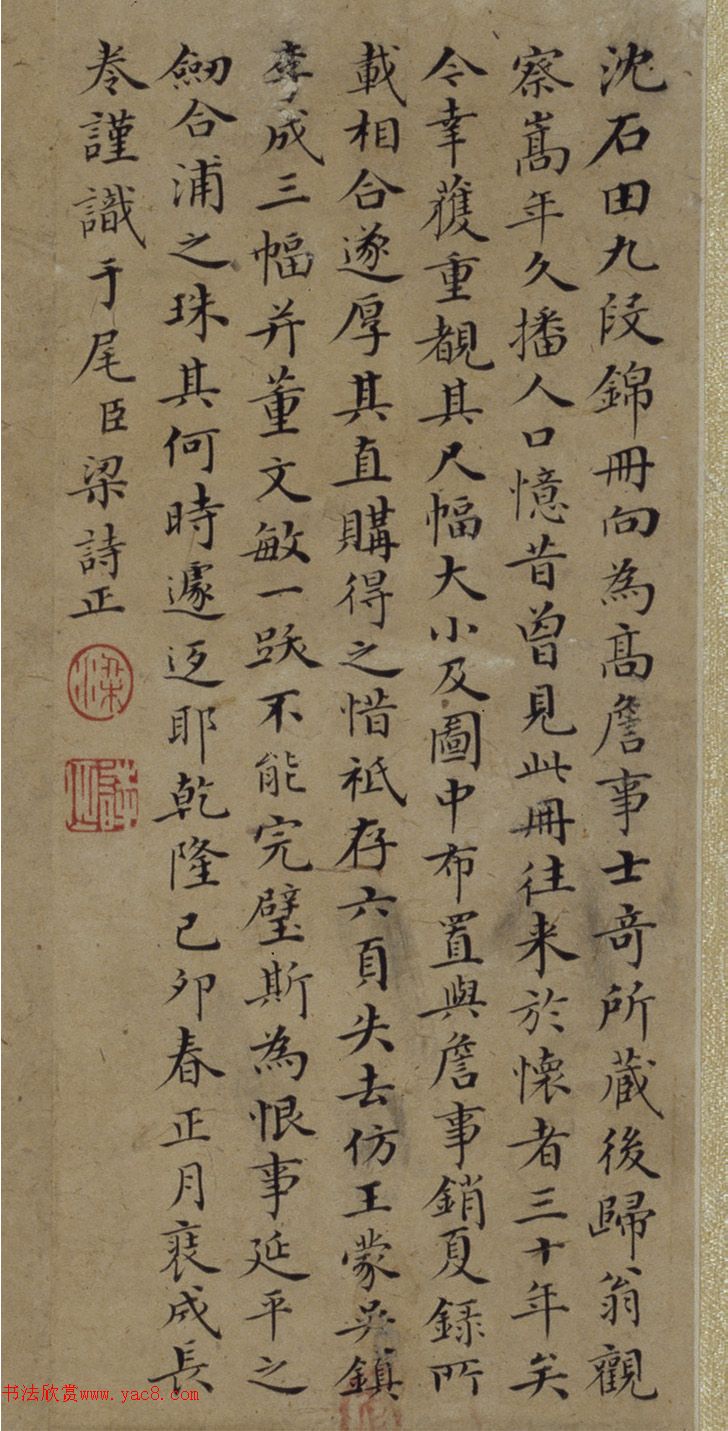 沈石田九段錦冊向為高詹事士竒所蔵後歸翁觀
察嵩年久播人口憶昔曾見此冊往来於懷者三十年矣
今幸獲重覩其尺幅大小及圖中布置與詹事銷夏錄所
載相合遂厚其直購得之惜祗存六頁失去仿王蒙吳鎮
李成三幅并董文敏一跋不能完璧斯為恨事延平之
劒合浦之珠其何時遽返耶乾隆己卯春正月裝成長
卷謹識于尾臣梁詩正
梁
书法欣赏www.yac8.com